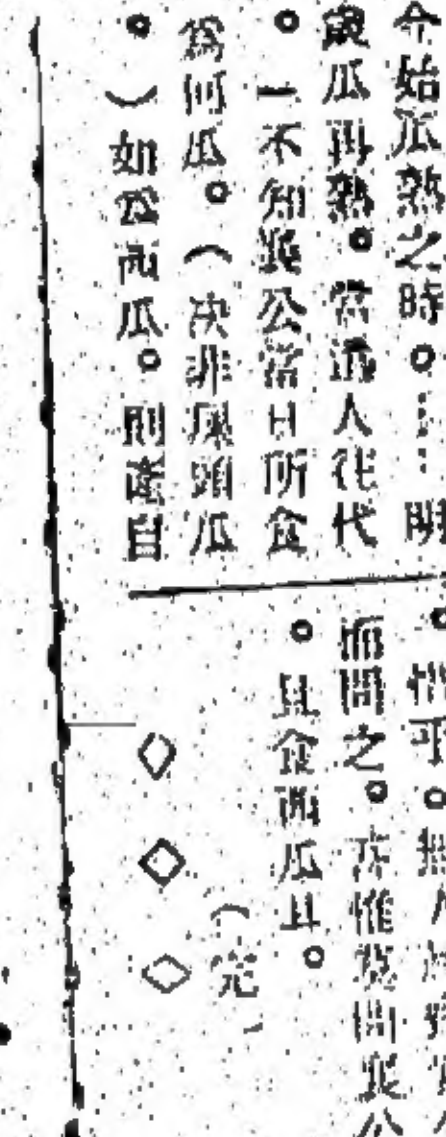 今始瓜熟之時。……明
歲瓜再熟。當遣人往代
。一不知襄公當日所食
爲何瓜。(决非厚頭瓜
。)如爲西瓜。則產自
。惜乎。無人
而問之。亦惟莫問襄公
。且食西瓜且。
(完)
◇◇◇